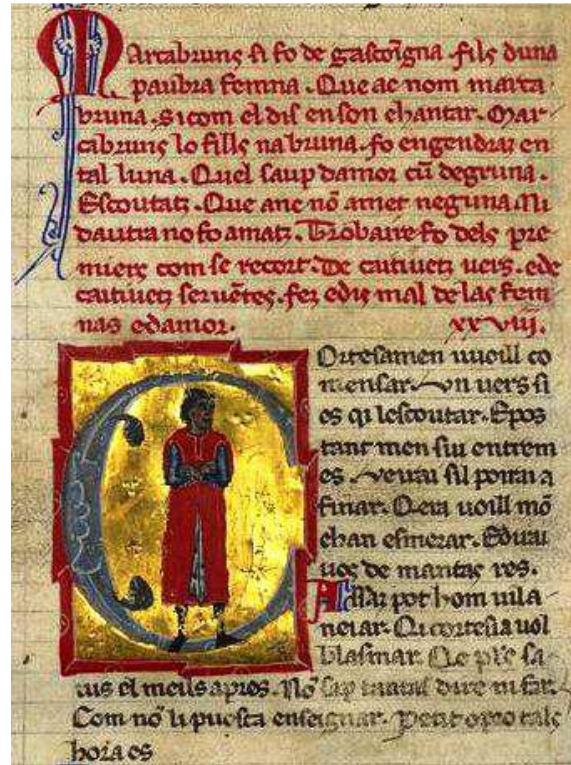 Marcabruns si fo de gascoigna fils duna
paubra femna. Que ac nom marca
bruna. si com el dis en son chantar. Mar
cabruns lo fills na bruna. fo engendraz en
tal luna. Quel saup damor cū degruna.
Escoutatz. Que anc nō amet neguna. Ni
dautra no fo amatz. Trobaire fo dels pre
miers com se recort. De caitivetz vers. e de
caitivetz serventes. fez e dis mal de las fem
nas e damor. xxviij.
Cortesamen vuoill co
mensar. un vers si
es qi lescoutar. E pos
tant men sui entrem
es. veirai sil poirai a
finar. Qera voill mō
chan esmerar. E dirai
vos de mantas res.
Assatz pot hom vila
neiar. Qi cortesia vol
blasmar. Qe
el meills apres. No sap tantas dire ni far.
Com nō li puosca enseignar. petit o pro tals
hora es